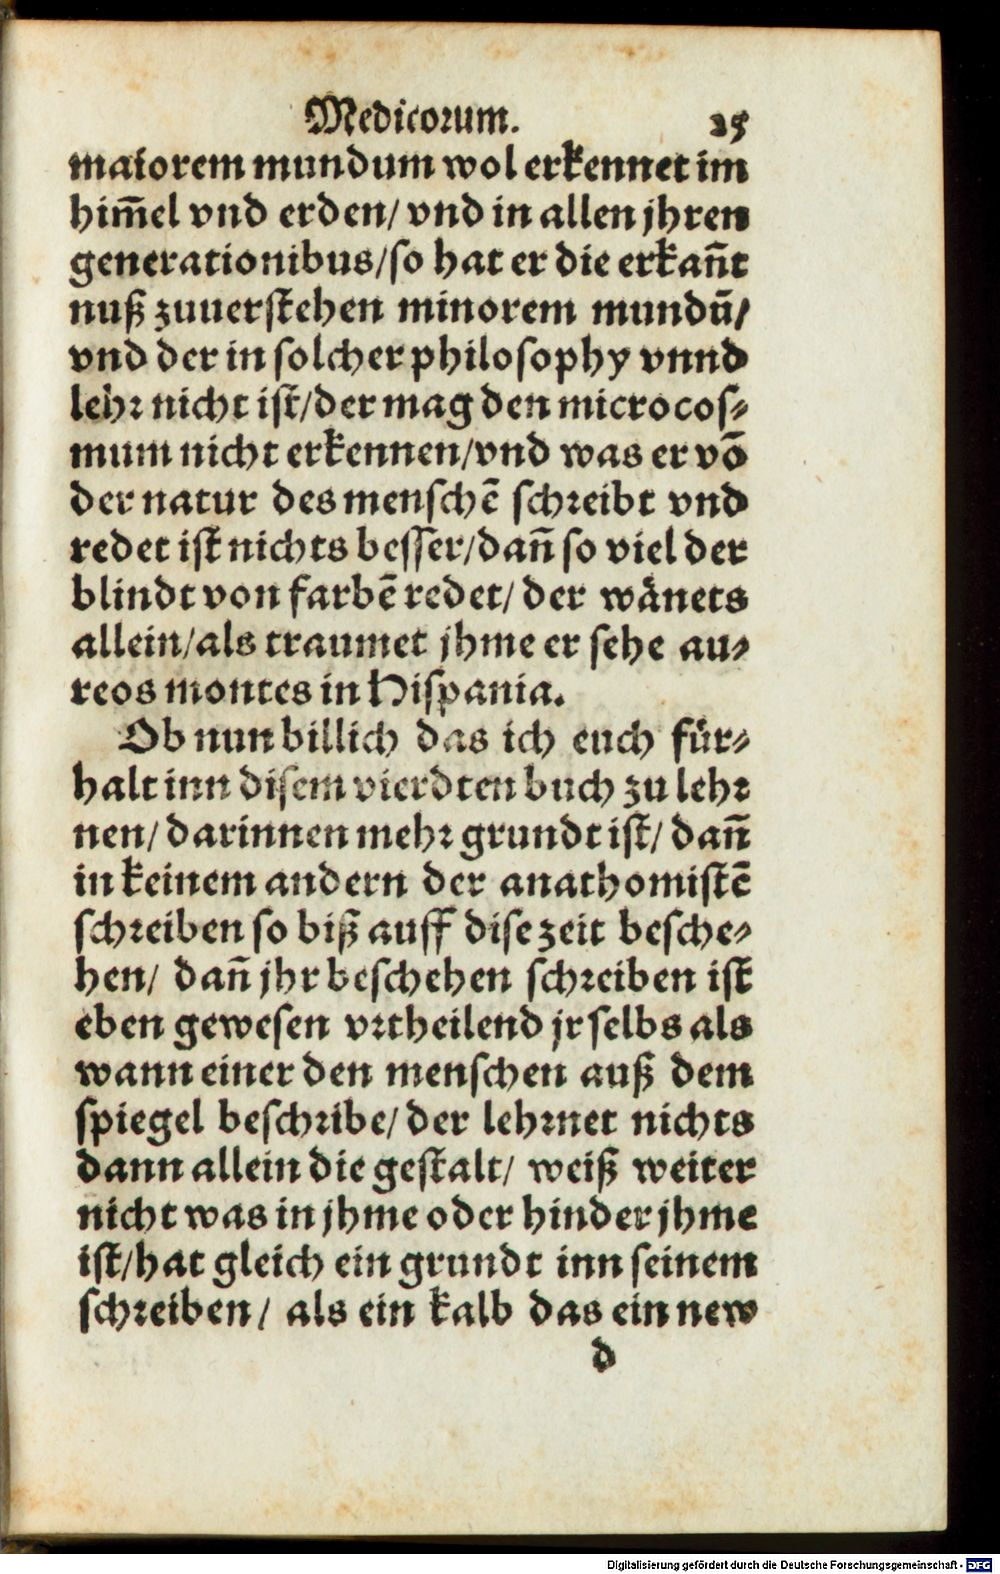 Medicorum. 25
maiorem mundum wol erkennet im
him̄el vnd erden/ vnd in allen jhren
generationibus/so hat er die erkan̄t
nuß zuuerstehen minorem mundū/
vnd der in solcher philosophy vnnd
lehr nicht ist/der mag den microcos⸗
mum nicht erkennen/vnd was er vō
der natur des menschē schreibt vnd
redet ist nichts besser/dan̄ so viel der
blindt von farbē redet/ der wänets
allein/als traumet jhme er sehe au⸗
reos montes in Hispania.
Ob nun billich das ich euch für⸗
halt inn disem vierdten buch zu lehr
nen/ darinnen mehr grundt ist/ dan̄
in keinem andern der anathomistē
schreiben so biß auff dise zeit besche⸗
hen/ dan̄ jhr beschehen schreiben ist
eben gewesen vrtheilend jr selbs als
wann einer den menschen auß dem
spiegel beschribe/ der lehrnet nichts
dann allein die gestalt/ weiß weiter
nicht was in jhme oder hinder jhme
ist/hat gleich ein grundt inn seinem
schreiben/ als ein kalb das ein new
d
Digitalisierung gefördert durch die Deutsche Forschungsgemeinschaft - DFG